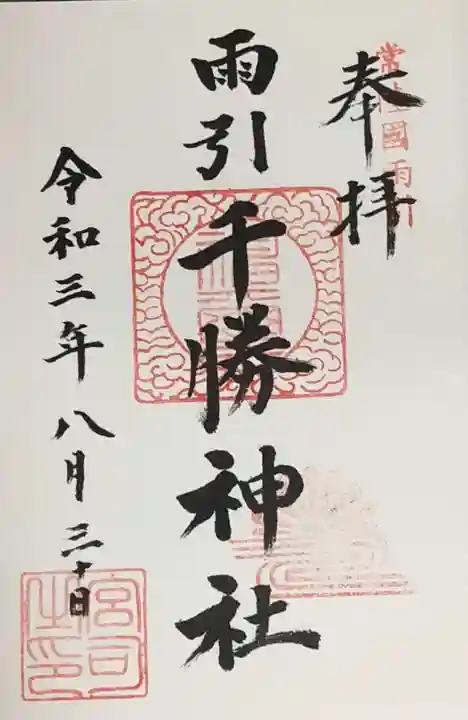 奉拝
常陸國雨引
雨引千勝神社
令和三年八月三十日
宮司之印